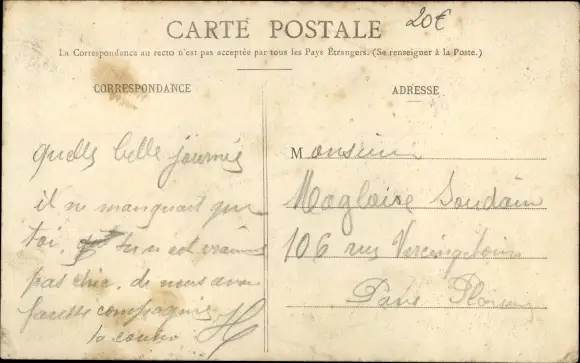 CARTE POSTALE
20€
La Correspondance au recto n'est pas acceptée par tous les Pays Étrangers. (Se renseigner à la Poste.)
CORRESPONDANCE
ADRESSE
quelle belle journée
il ne manquait que
toi, tu es vraiment
pas chic, de nous avoir
fausse compagnie
H
Monsieur
Magloire Soudain
106 rue Vercingétorix
Paris Plaisance